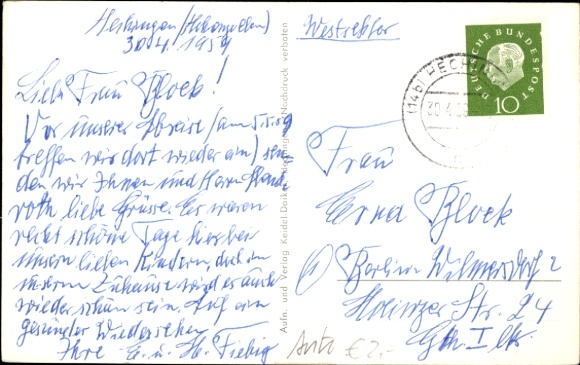 Hechingen (Hohenzollern)
30.4.1959
Liebe Frau Block!
Vor unserer Abreise (am 5.5.59
treffen wir dort wieder ein) sen-
den wir Ihnen und Herrn
roth liebe Grüsse. Es waren
recht schöne Tage hier bei
unsern lieben Kindern, doch in
unserm Zuhause wird es auch
wieder schön sein. Auf ein
gesundes Wiedersehen
Ihre E. u. H. Fiebig
Aufn. und Verlag Keidel-Daiker, Nachdruck verboten
Westsektor
DEUTSCHE BUNDESPOST
10
(14b) HECHINGEN
30.4.59
Frau
Erna Block
Berlin Wilmersdorf 2
Mainzer Str. 24
Gth. I lks.
Auto € 2,-